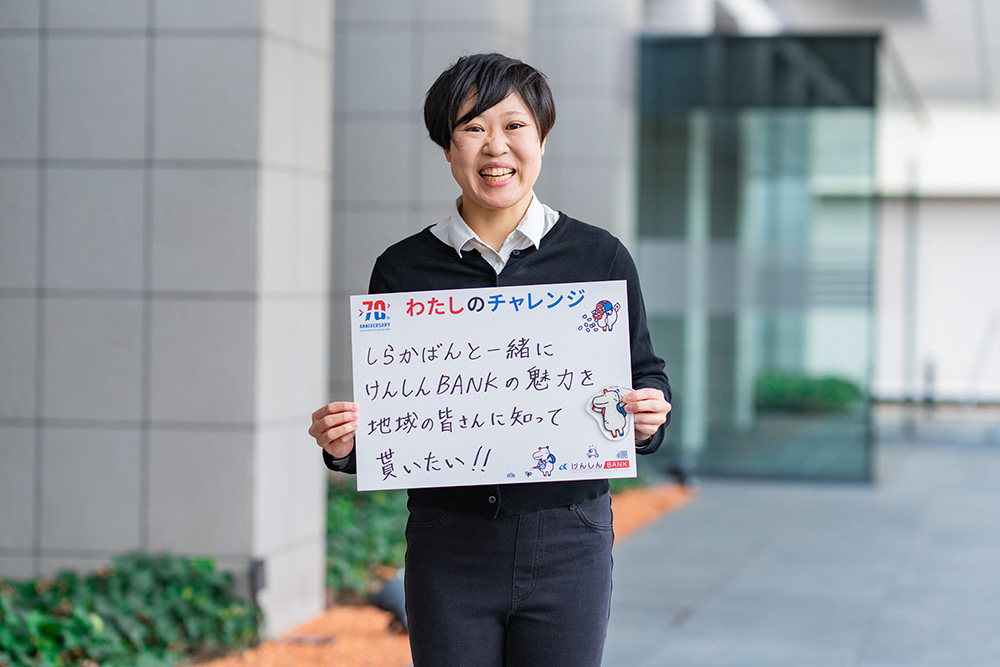 70th わたしのチャレンジ
ANNIVERSARY
しらかばんと一緒に
けんしんBANKの魅力を
地域の皆さんに知って
貰いたい!!
けんしんBANK